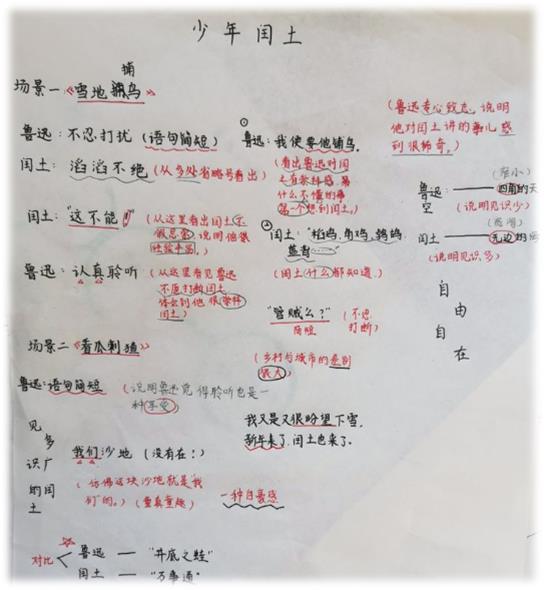 少年闰土
场景一《雪地捕鸟》
捕
鲁迅：不忍打扰（语句简短）
闰土：滔滔不绝（从多处省略号看出）
闰土：“这不能！”
（从这里看出闰土
说明他很
经验丰富。）
鲁迅：认真聆听
（从这里看见鲁迅
不愿打断闰土
体会到他很崇拜
闰土）
场景二《看瓜刺猹》
鲁迅：语句简短
（说明鲁迅觉得聆听也是一
种享受）
见多识广的闰土
我们沙地（没有在！）
（仿佛这块沙地就是“我
们”的。）（童真童趣）
一种自豪感
对比
鲁迅——“井底之蛙”
闰土——“万事通”
①
鲁迅：我便要他捕鸟。
（看出鲁迅对闰
土有崇拜感，
什么不懂的事
第一个想到闰土。）
②
闰土：“稻鸡，角鸡，鹁鸪，
蓝背……”
（闰土什么都知道。）
“管贼么？”（不忍
简短 打断）
（乡村与城市的差别
很大）
我又是又很盼望下雪，
新年来了，闰土也来了。
（鲁迅专心致志，说明
他对闰土讲的事儿感
到很稀奇。）
鲁迅：——四角的天
空（说明见识少）
闰土——无边的
（说明见识多）
自由自在